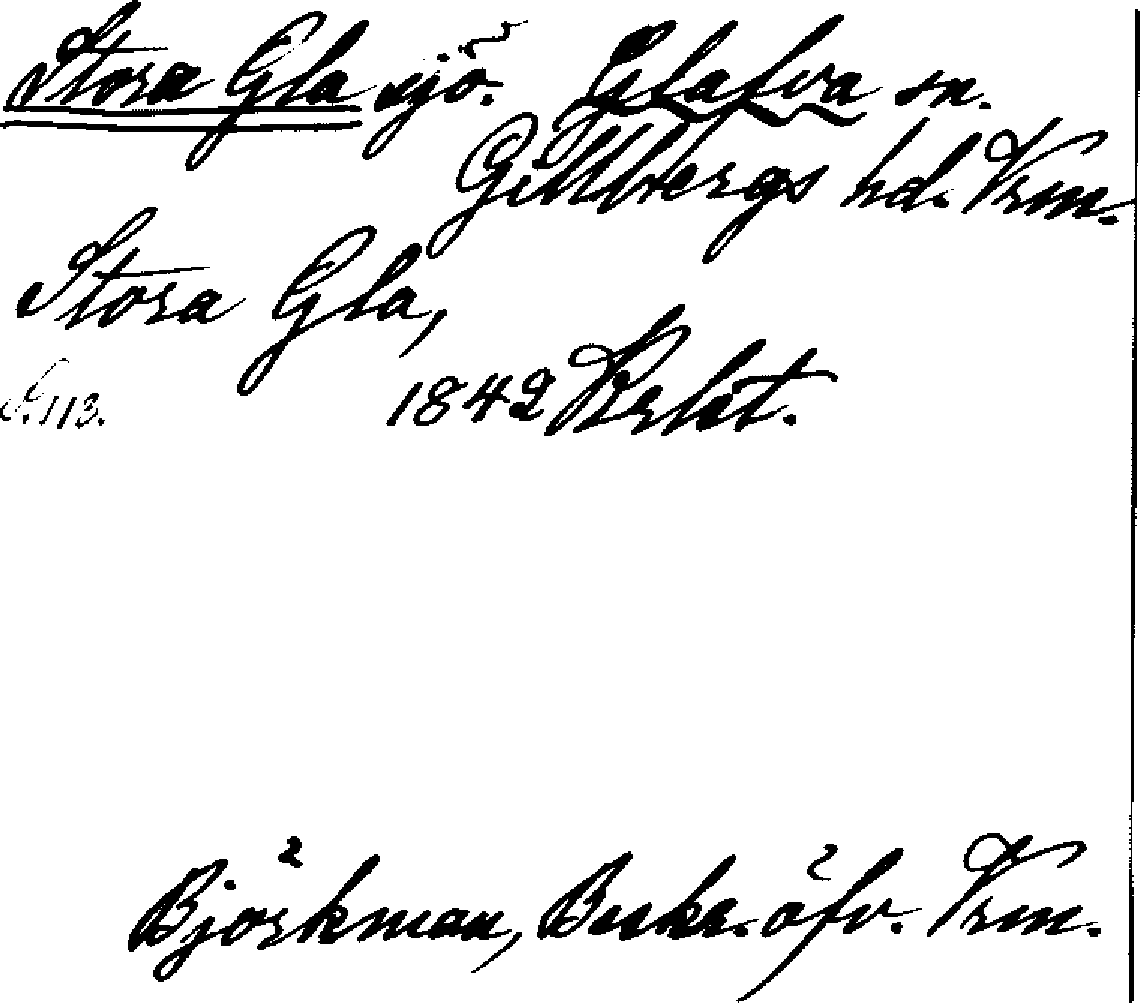 Stora Gla sjö. Glafva sn.
Gillbergs hd. Vrm.
Stora Gla,
S. 113. 1842
Björkman, Beskr. öfv. Vrm.